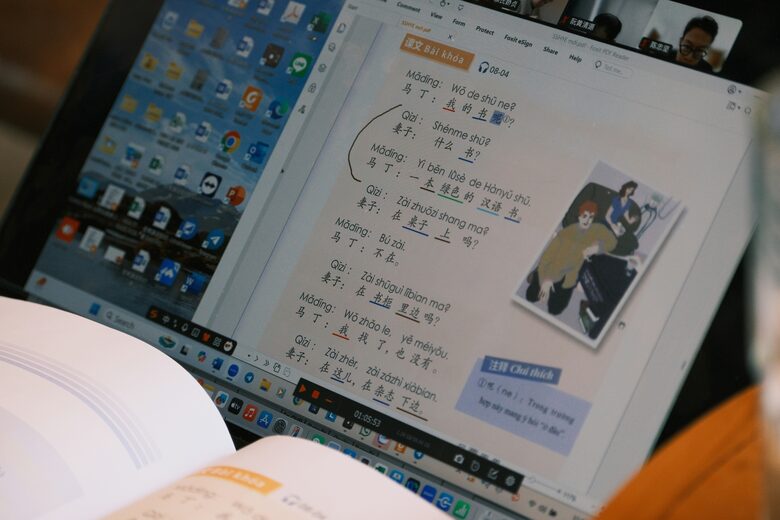 Comment View Form Protect Foxit eSign Share Help
课文 Bài khóa
08-04
Mǎdīng: Wǒ de shū ne?
马丁：我的书呢①？
Qīzi: Shénme shū?
妻子：什么书？
Mǎdīng: Yì běn lǜsè de Hànyǔ shū.
马丁：一本绿色的汉语书。
Qīzi: Zài zhuōzi shang ma?
妻子：在桌子上吗？
Mǎdīng: Bú zài.
马丁：不在。
Qīzi: Zài shūguì lǐbian ma?
妻子：在书柜里边吗？
Mǎdīng: Wǒ zhǎo le, yě méiyǒu.
马丁：我找了，也没有。
Qīzi: Zài zhèr, zài zázhì xiàbian.
妻子：在这儿，在杂志下边。
注释 Chú thích
①呢 (ne): Trong trường
hợp này mang ý hỏi "ở đâu"
Search
01:05:53
Bài khóa